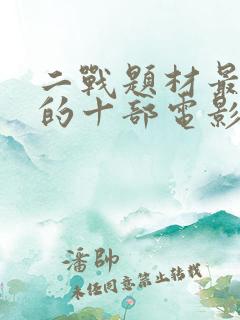 二戰題材最
的十部電影
潘帥
未经同意禁止转载